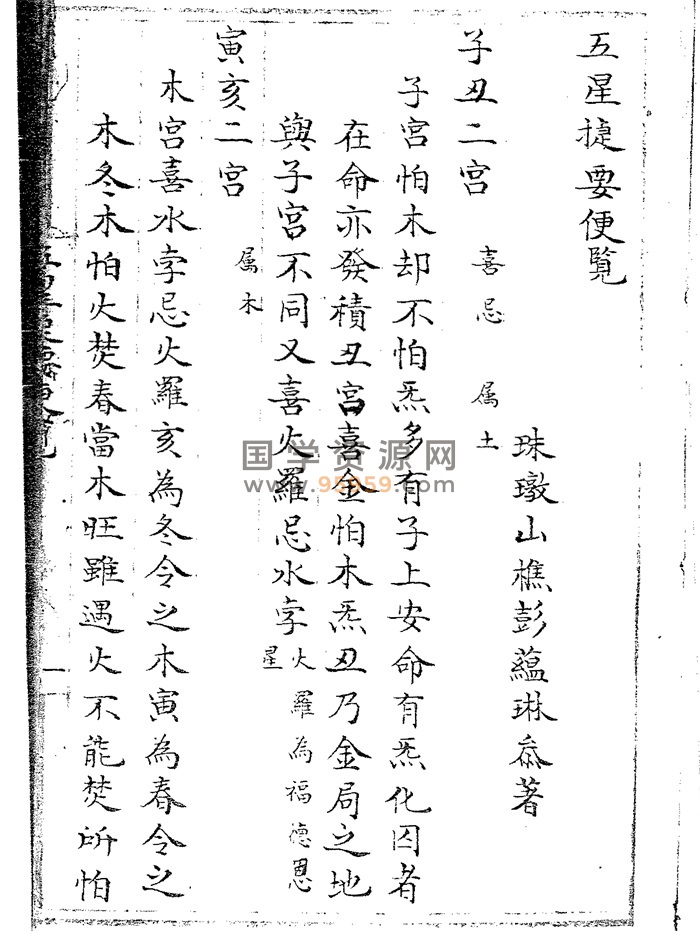 五星捷要便覧
珠璥山樵彭蘊琳叅著
子丑二宫 喜忌 属土
子宫怕木却不怕炁多有子上安命有炁化囚者
在命亦發積丑宫喜金怕木炁丑乃金局之地
與子宫不同又喜火羅忌水孛 火羅為福德恩星
寅亥二宫 属木
木宫喜水孛忌火羅亥為冬令之木寅為春令之
木冬木怕火焚春當木旺雖遇火不能焚所怕
一
国学资源网
www.95959.com